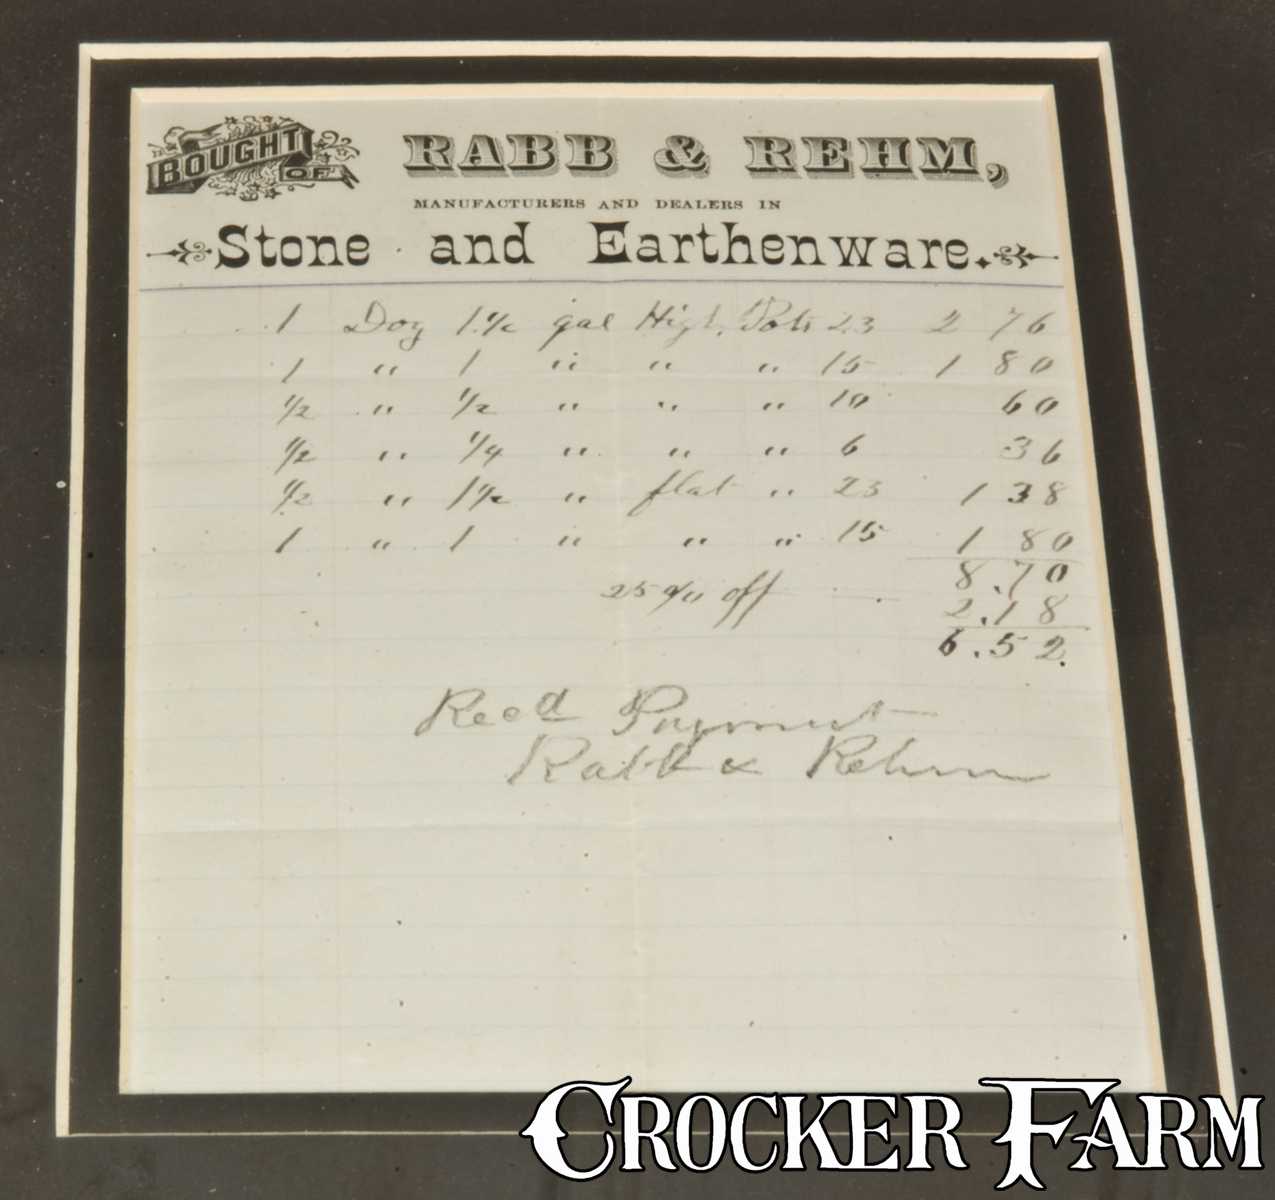 BOUGHT OF
RABB & REHM,
MANUFACTURERS AND DEALERS IN
Stone and Earthenware.
1 Doz 1 1/2 gal High Pots 23 2 76
1 " 1 " " " 15 1 80
1/2 " 1/2 " " " 10 60
1/2 " 1/4 " " " 6 36
1/2 " 1 1/2 " flat " 23 1 38
1 " 1 " " " 15 1 80
8.70
25 % off 2.18
6.52.
Recd Payment
Rabb & Rehm
CROCKER FARM